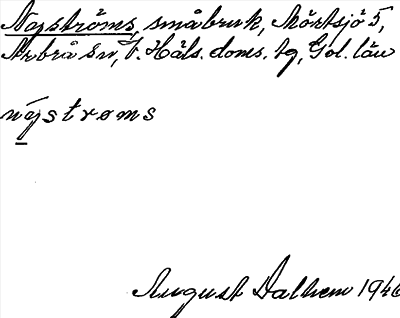 Nyströms, småbruk, Mörtsjö 5,
Arbrå sn, V. Häls. doms. tg, Gvl. län
nýstrøms
August Dalhem 1946